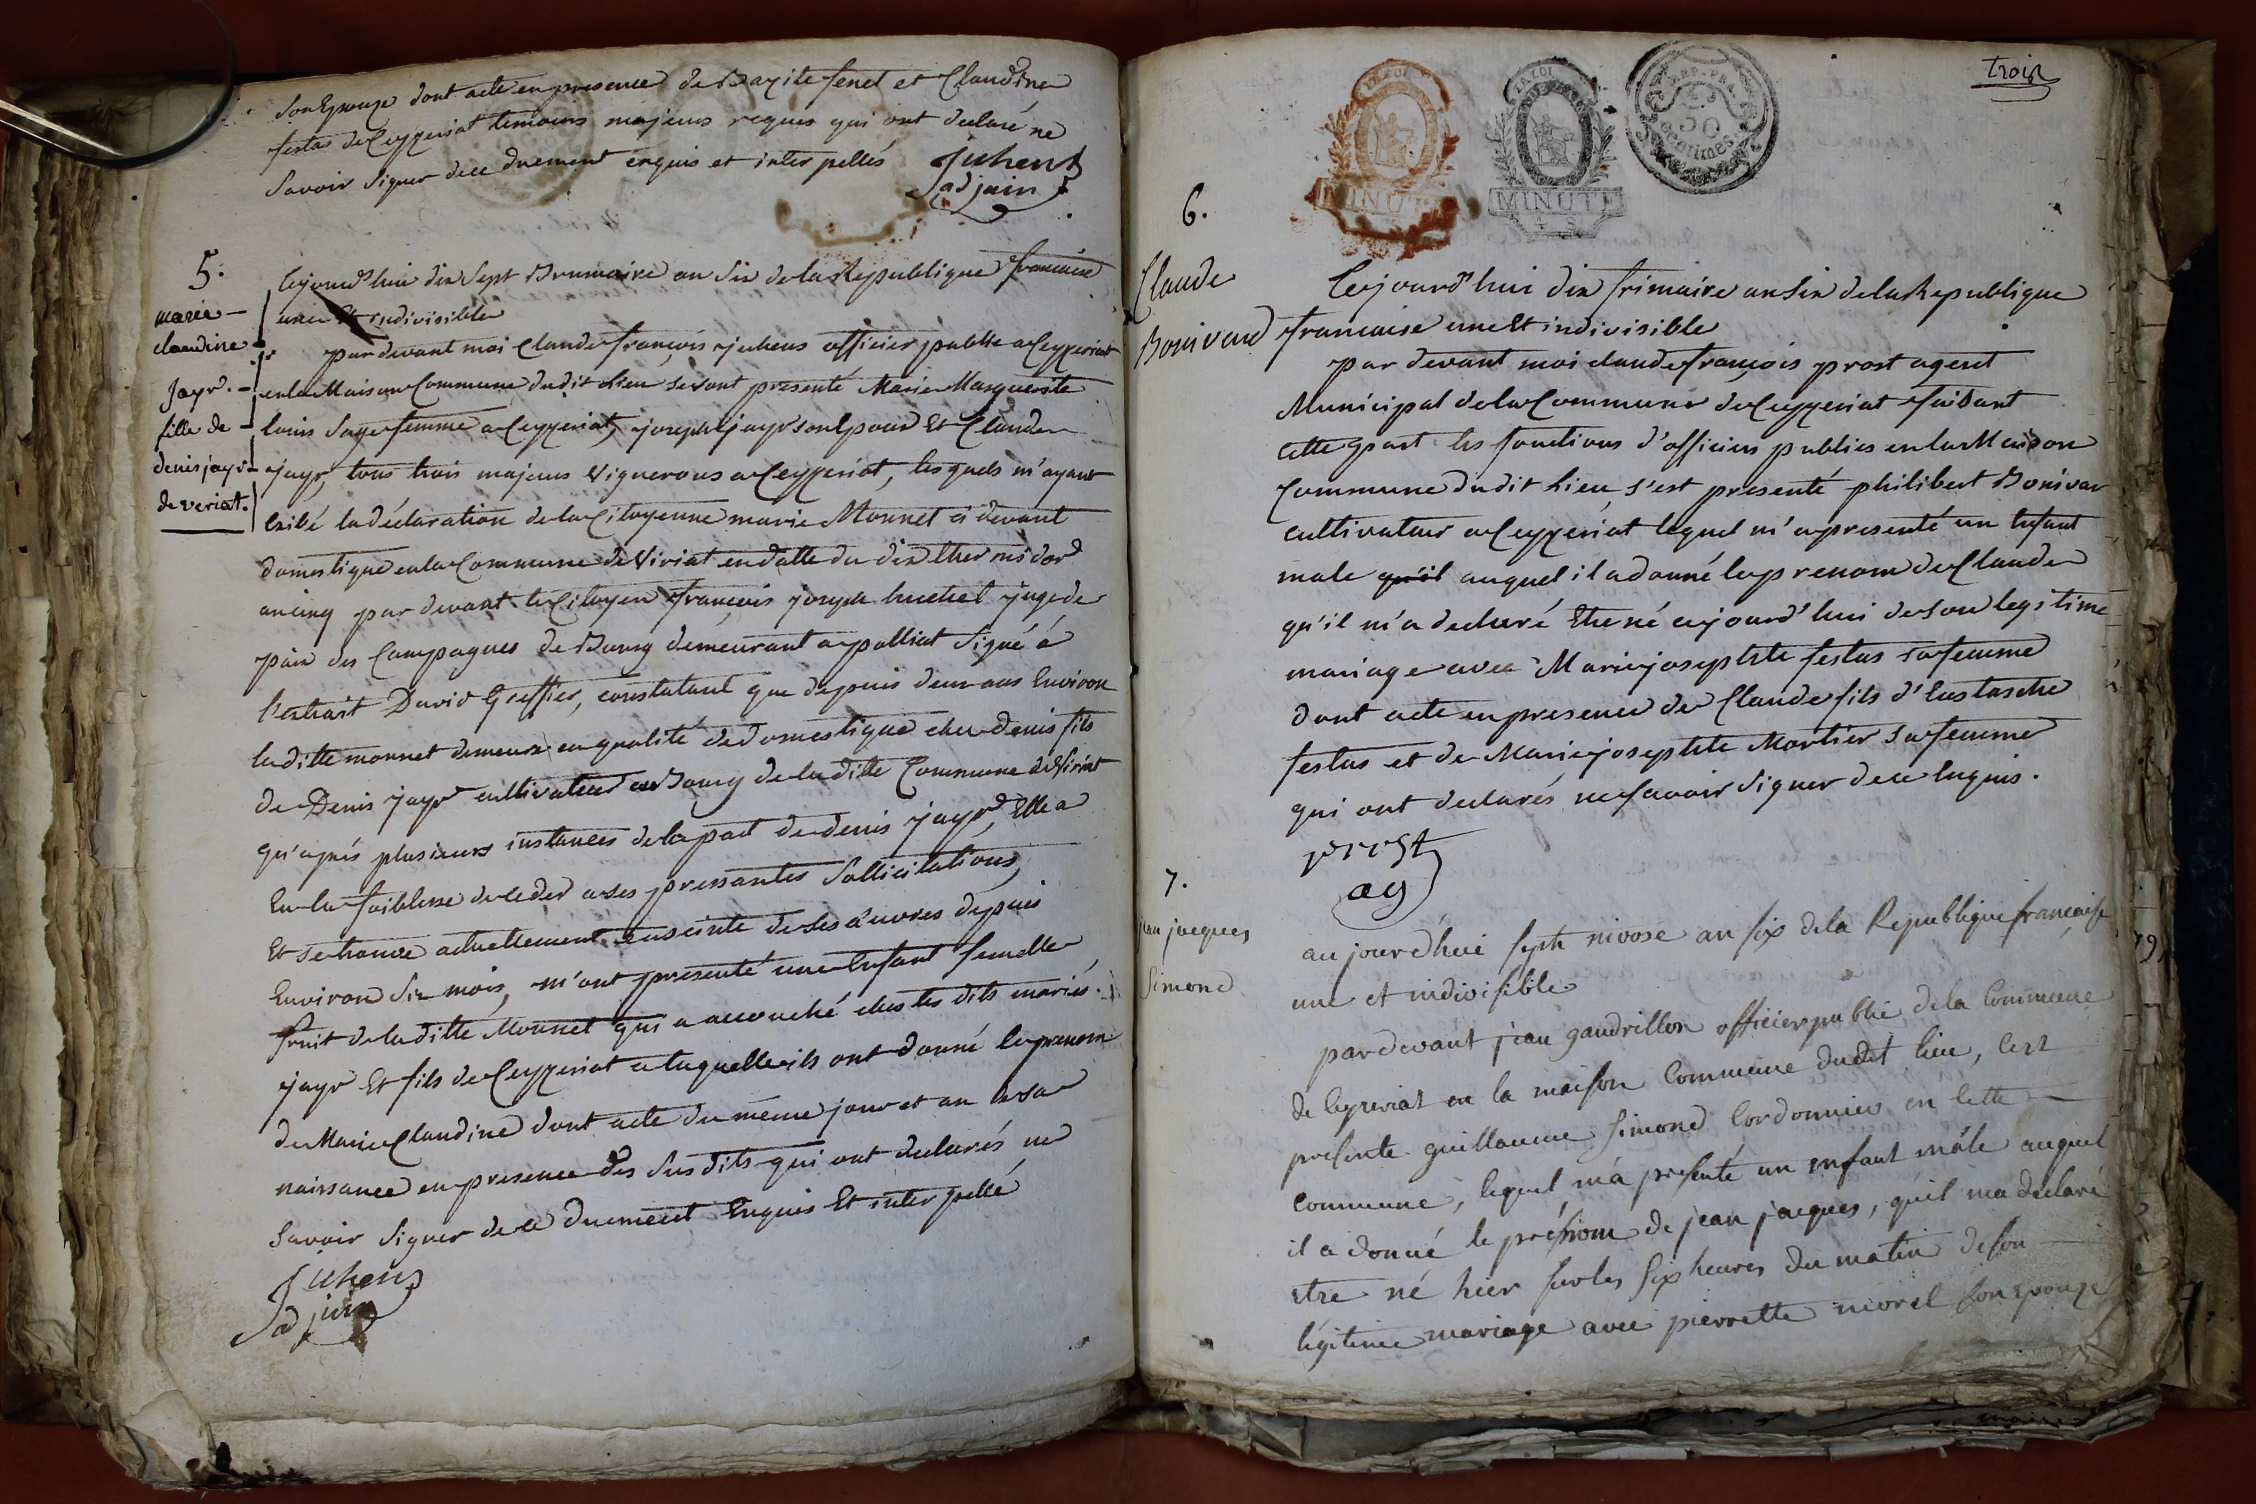 son Epouze dont acte en presence de Bazile fenet et Claudine
festas de Ceyzeriat temoins majeurs requis qui ont declaré ne
Savoir Signer de ce duement enquis et interpellés Juhens
adjoin
5.
marie
claudine
Jayr.
fille de
denis jayr
de veriat.
Cejourd'hui dix Sept Brumaire an Six de la Republique francaise
une Et indivisible
par devant moi Claude françois juhens officier public a Ceyzeriat
en la Maison Commune dudit lieu se sont presenté Marie Marguerite
louis Sage femme a Ceyzeriat, joseph jayr son Epoux Et Claude
jayr, tous trois majeurs Vignerons a Ceyzeriat, lesquels m'ayant
Exibé la déclaration de la Citoyenne marie Monnet ci devant
domestique en la Commune de Viriat en datte du dix thermidor
an cinq par devant le Citoyen françois joseph juge de
paix des Campagnes de Bourg demeurant a polliat Signé à
l'extrait David Greffier, constatant que depuis deux ans Environ
la ditte monnet demeure en qualité de domestique chez denis fils
de Denis jayr cultivateur au Bourg de la ditte Commune de Viriat
qu'après plusieurs instances de la part de denis jayr, Elle a
Eu la faiblesse de ceder a ses pressantes Sollicitations,
Et se trouve actuellement enceinte de ses œuvres depuis
Environ Six mois, m'ont presenté une Enfant femelle
fruit de la ditte Monnet qui a accouché chez les dits mariés
jayr Et fils de Ceyzeriat a laquelle ils ont donné le prenom
de Marie Claudine dont acte du même jour et an de sa
naissance en presence des Sus dits qui ont declarés ne
Savoir Signer de ce duement Enquis Et interpellé
Juhens
adjoin
trois
LA LOI
LA LOI
50
centimes
MINUTE
MINUTE
6.
Claude
Bonivard
Cejourd'hui dix frimaire an Six de la Republique
francaise une Et indivisible
par devant moi claude françois prost agent
Municipal de la Commune de Ceyzeriat faisant
cette part les fonctions d'officier publics en la Maison
Commune dudit lieu s'est presenté philibert Bonivar
cultivateur a Ceyzeriat lequel m'a presenté un Enfant
male qu'il auquel il a donné le prenom de Claude
qu'il m'a declaré Etre né aujourd'hui de son legitime
mariage avec Marie josephte festas sa femme
dont acte en presence de Claude fils d'Eustasche
festas et de Marie josephte Mortier Sa femme
qui ont declarés ne Savoir Signer de ce Enquis.
prost
ag
7.
jean jacques
Simond
aujourd'hui sept nivose an six de la Republique francaise
une et indivisible
par devant jean gaudrillon officier public de la Commune
de Ceyzeriat en la maison Commune dudit lieu, s'est
presenté guillaume Simond Cordonnier en cette
commune, lequel m'a presenté un enfant mâle auquel
il a donné le prénom de jean jacques, qu'il m'a declaré
etre né hier sur les six heures du matin de son
légitime mariage avec pierrette morel son epouze